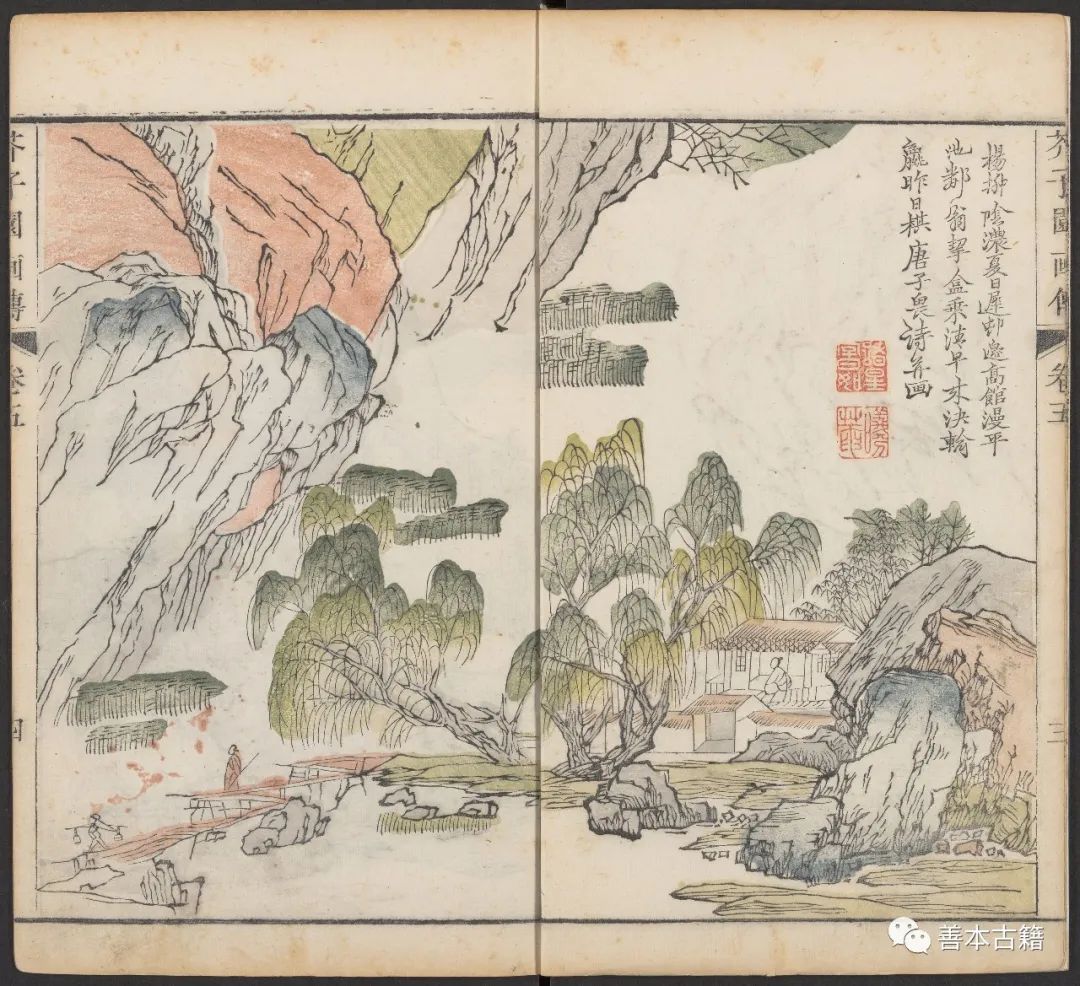 芥子園畫傳 卷五 三
楊柳陰濃夏日遲邨邊高館漫平
池鄰翁挈盒乘清早来決輸
贏昨日棋唐子畏诗并画
芥子園畫傳 卷五 四
善本古籍